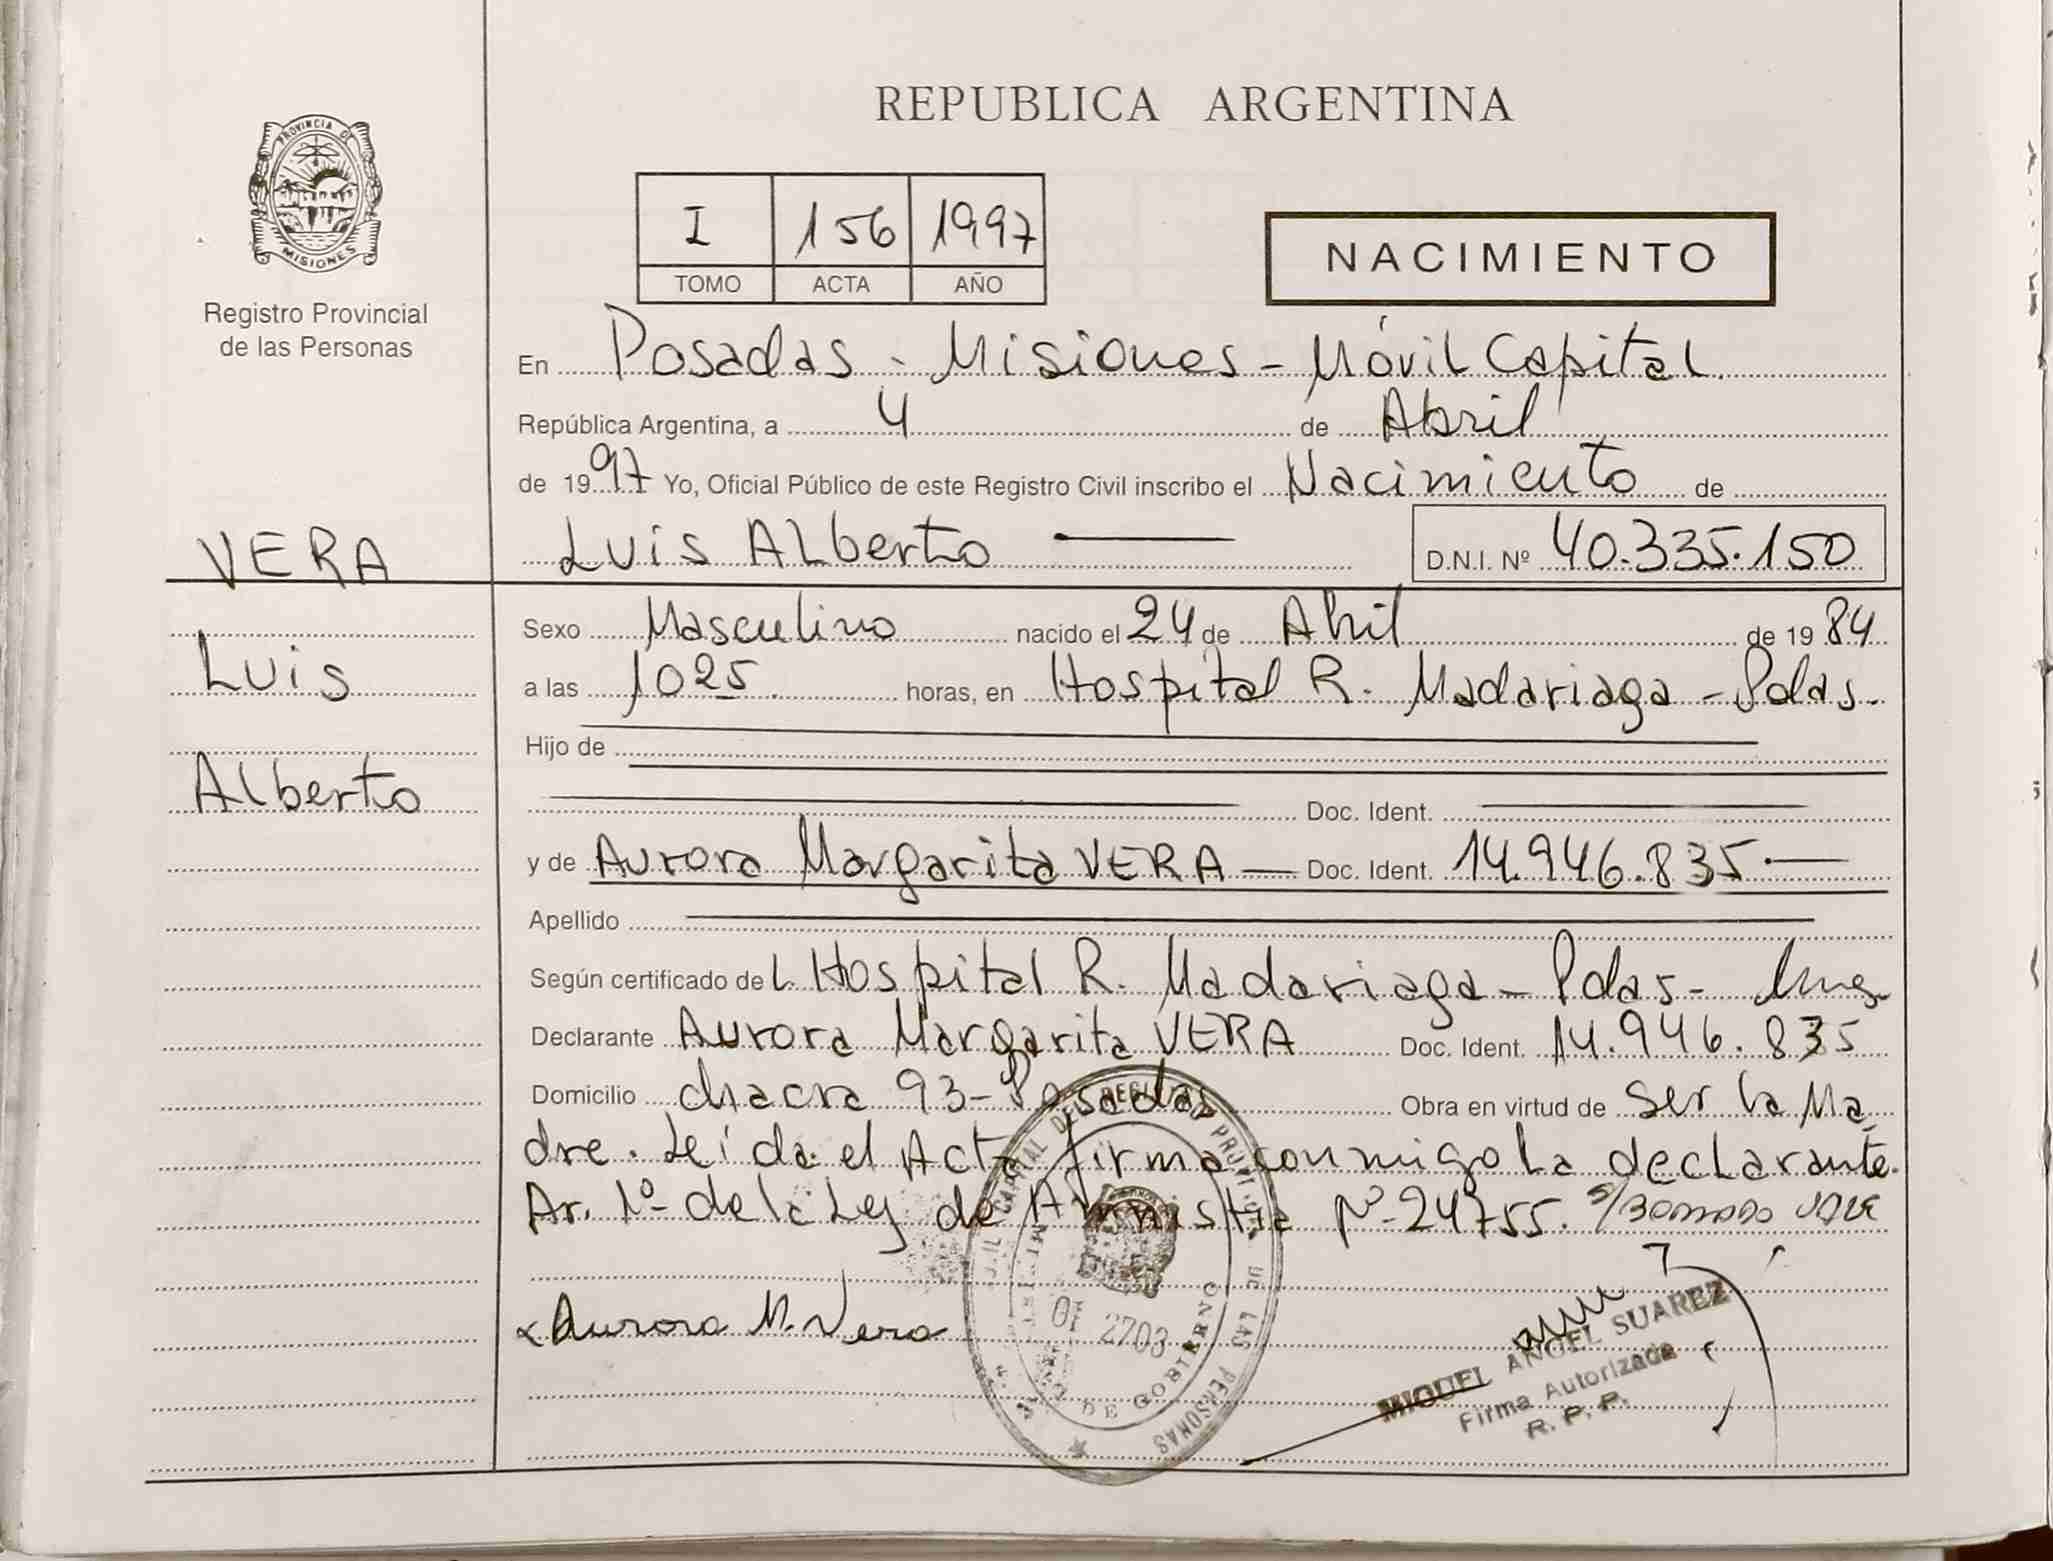 REPUBLICA ARGENTINA
PROVINCIA DE
MISIONES
Registro Provincial
de las Personas
I 156 1997
TOMO ACTA AÑO
NACIMIENTO
En Posadas - Misiones - Móvil Capital
República Argentina, a 4 de Abril
de 1997 Yo, Oficial Público de este Registro Civil inscribo el Nacimiento de
VERA
Luis Alberto D.N.I. Nº 40.335.150
Sexo Masculino nacido el 24 de Abril de 1984
Luis
a las 1025 horas, en Hospital R. Madariaga - Pdas.
Hijo de
Alberto
Doc. Ident.
y de Aurora Margarita VERA Doc. Ident. 14.946.835.
Apellido
Según certificado del Hospital R. Madariaga - Pdas -
Declarante Aurora Margarita VERA Doc. Ident. 14.946.835
Domicilio chacra 93 - Posadas Obra en virtud de ser la Ma
dre. Leída el Acta firma conmigo la declarante.
Ar. 1º de la Ley de Amnistia Nº 24755. VALE
Aurora M. Vera
CAPITAL DEL REGISTRO PROVINCIAL DE LAS PERSONAS
DE GOBIERNO
2703
MIGUEL ANGEL SUAREZ
Firma Autorizada
R. P. P.